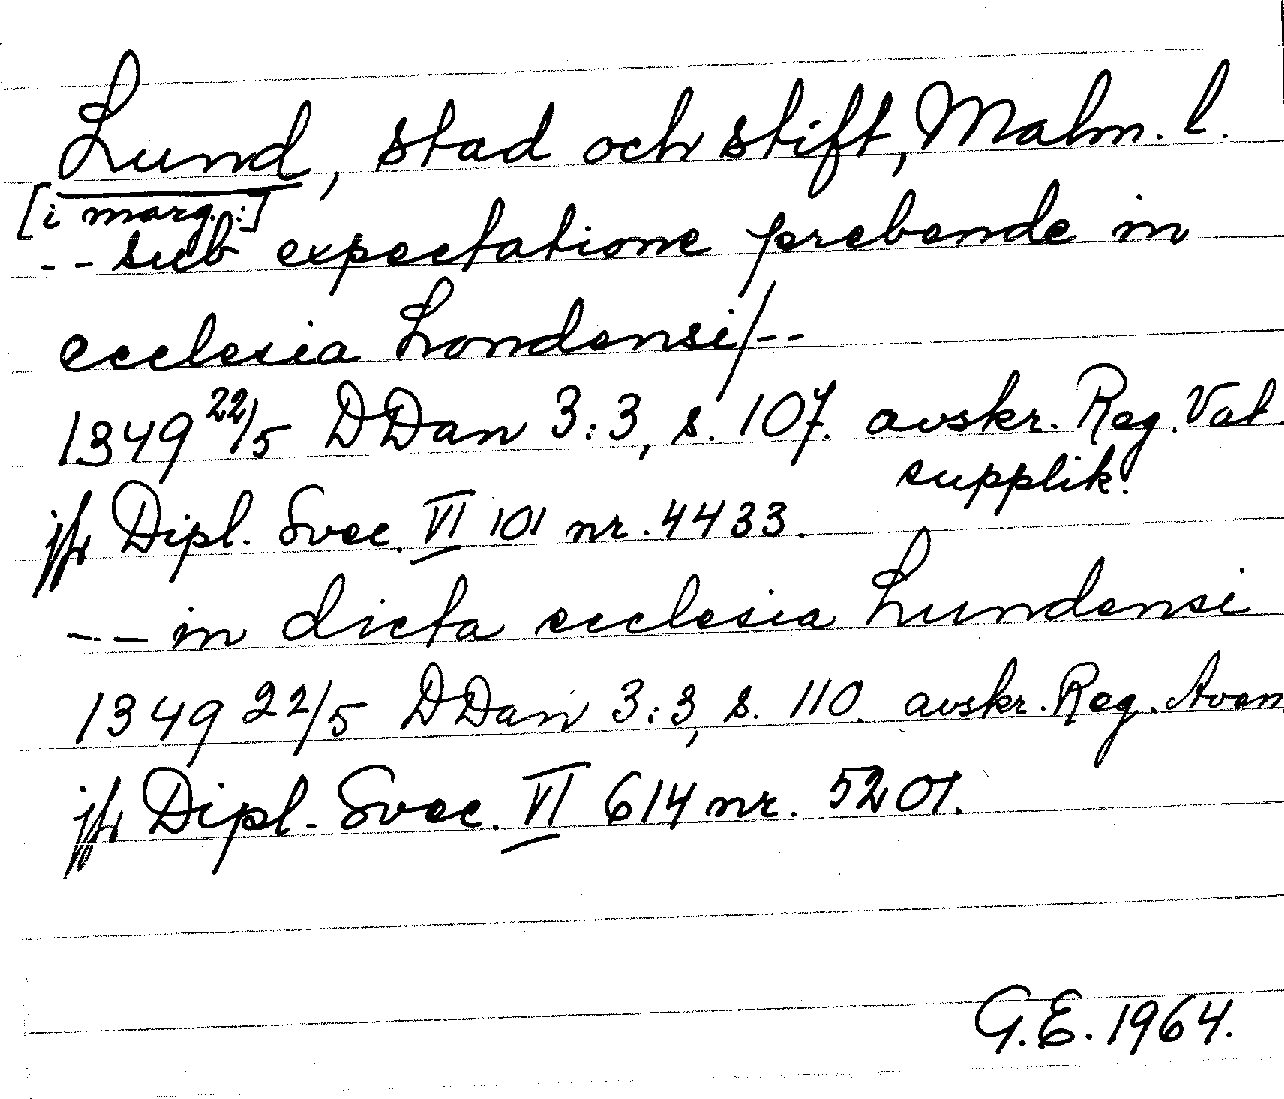 Lund, stad och stift, Malm. l.
[i marg.:]
-- sub expectatione prebende in
ecclesia Londensi/--
1349 22/5 DDan 3:3, s. 107. avskr. Reg. Vat.
supplik.
jfr Dipl. Svec. VI 101 nr. 4433.
-- in dicta ecclesia Lundensi
1349 22/5 DDan 3:3, s. 110. avskr. Reg. Aven
jfr Dipl. Svec. VI 614 nr. 5201.
G.E. 1964.